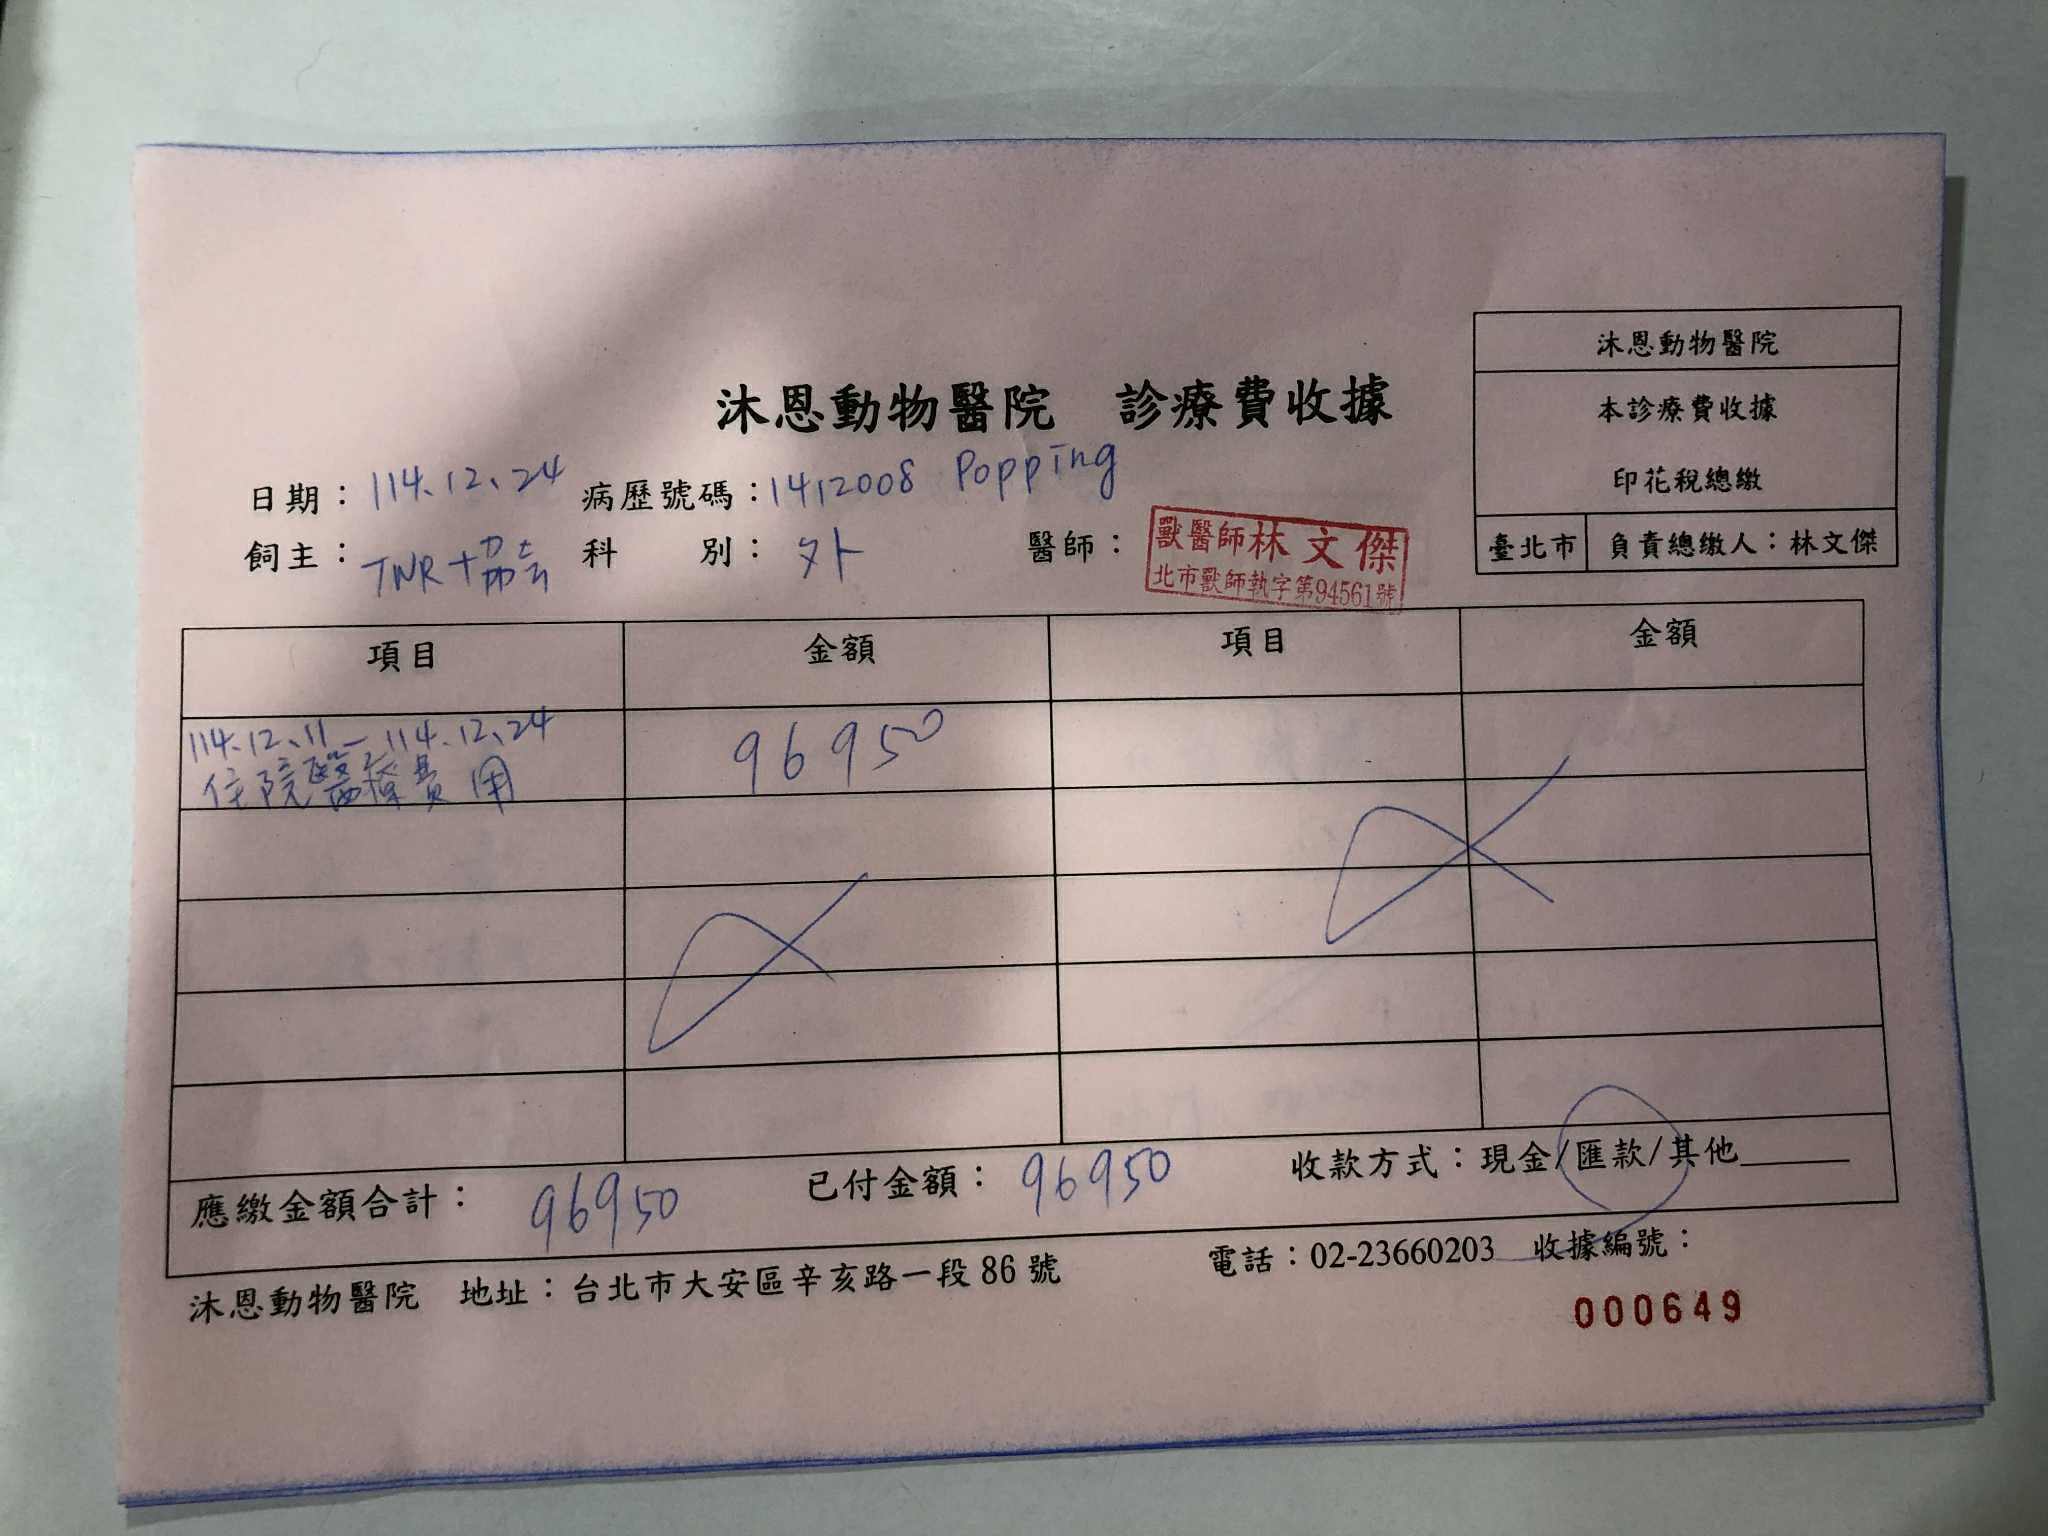 沐恩動物醫院
本診療費收據
印花稅總繳
臺北市 負責總繳人：林文傑
沐恩動物醫院 診療費收據
日期：114.12.24 病歷號碼：1412008 Popping
飼主：TNR+協会 科 別：外 醫師：
獸醫師林文傑
北市獸師執字第94561號
項目 金額 項目 金額
114.12.11-114.12.24 96950
住院醫療費用
應繳金額合計：96950 已付金額：96950 收款方式：現金/匯款/其他
沐恩動物醫院 地址：台北市大安區辛亥路一段86號 電話：02-23660203 收據編號：
000649